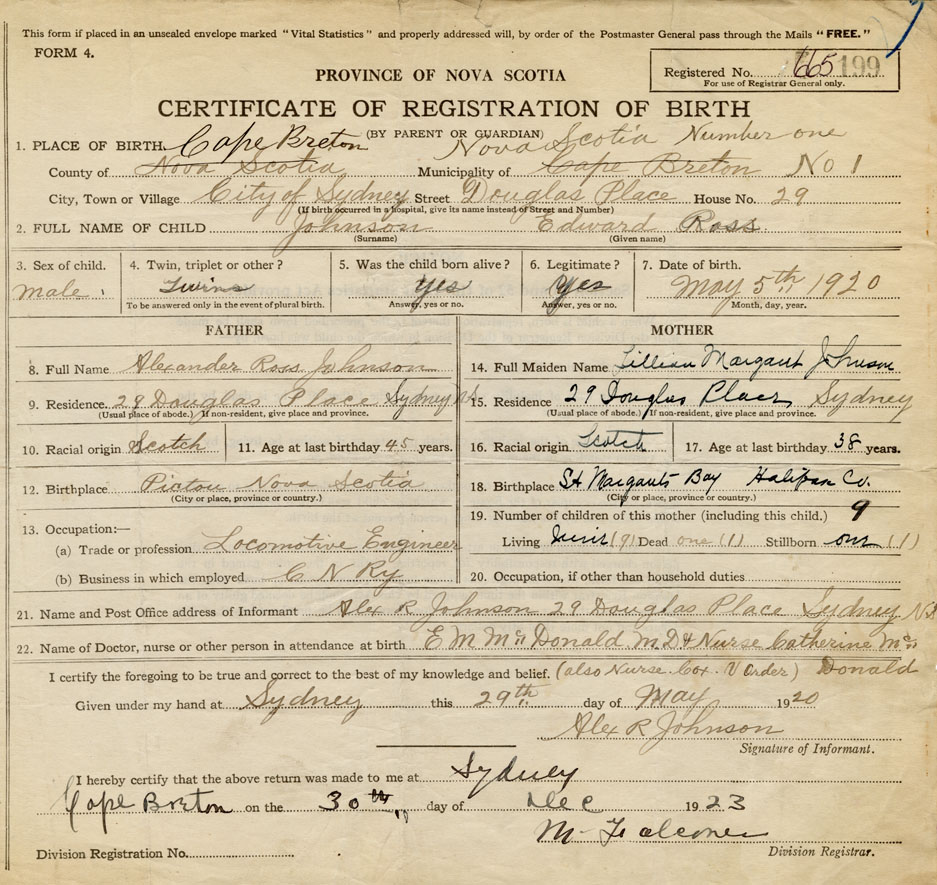 This form if placed in an unsealed envelope marked "Vital Statistics" and properly addressed will, by order of the Postmaster General pass through the Mails "FREE."
FORM 4.
Registered No. 665 199
For use of Registrar General only.
PROVINCE OF NOVA SCOTIA
CERTIFICATE OF REGISTRATION OF BIRTH
(BY PARENT OR GUARDIAN)
1. PLACE OF BIRTH. Cape Breton Nova Scotia Number one
County of Nova Scotia Municipality of Cape Breton No 1
City, Town or Village City of Sydney Street Douglas Place House No. 29
(If birth occurred in a hospital, give its name instead of Street and Number)
2. FULL NAME OF CHILD Johnson Edward Ross
(Surname) (Given name)
3. Sex of child. 4. Twin, triplet or other? 5. Was the child born alive? 6. Legitimate? 7. Date of birth.
male Twins yes yes May 5th 1920
To be answered only in the event of plural birth. Answer, yes or no. Answer, yes or no. Month, day, year.
FATHER
8. Full Name Alexander Ross Johnson
9. Residence. 29 Douglas Place Sydney
(Usual place of abode.) If non-resident, give place and province.
10. Racial origin Scotch 11. Age at last birthday 45 years.
12. Birthplace Pictou Nova Scotia
(City or place, province or country.)
13. Occupation:—
(a) Trade or profession Locomotive Engineer
(b) Business in which employed C N Ry
MOTHER
14. Full Maiden Name Lillian Margaret Johnson
15. Residence 29 Douglas Place Sydney
(Usual place of abode.) If non-resident, give place and province.
16. Racial origin Scotch 17. Age at last birthday 38 years.
18. Birthplace St Margarets Bay Halifax Co.
(City or place, province or country.)
19. Number of children of this mother (including this child.) 9
Living (9) Dead one (1) Stillborn one (1)
20. Occupation, if other than household duties
21. Name and Post Office address of Informant Alex R Johnson 29 Douglas Place Sydney N.S.
22. Name of Doctor, nurse or other person in attendance at birth E M McDonald M D & Nurse Catherine Mc
I certify the foregoing to be true and correct to the best of my knowledge and belief. (also Nurse Cox V Order) Donald
Given under my hand at Sydney this 29th day of May 1920
Alex R Johnson
Signature of Informant.
I hereby certify that the above return was made to me at Sydney
Cape Breton on the 30th day of Dec 1923
M. Falconer
Division Registration No. Division Registrar.